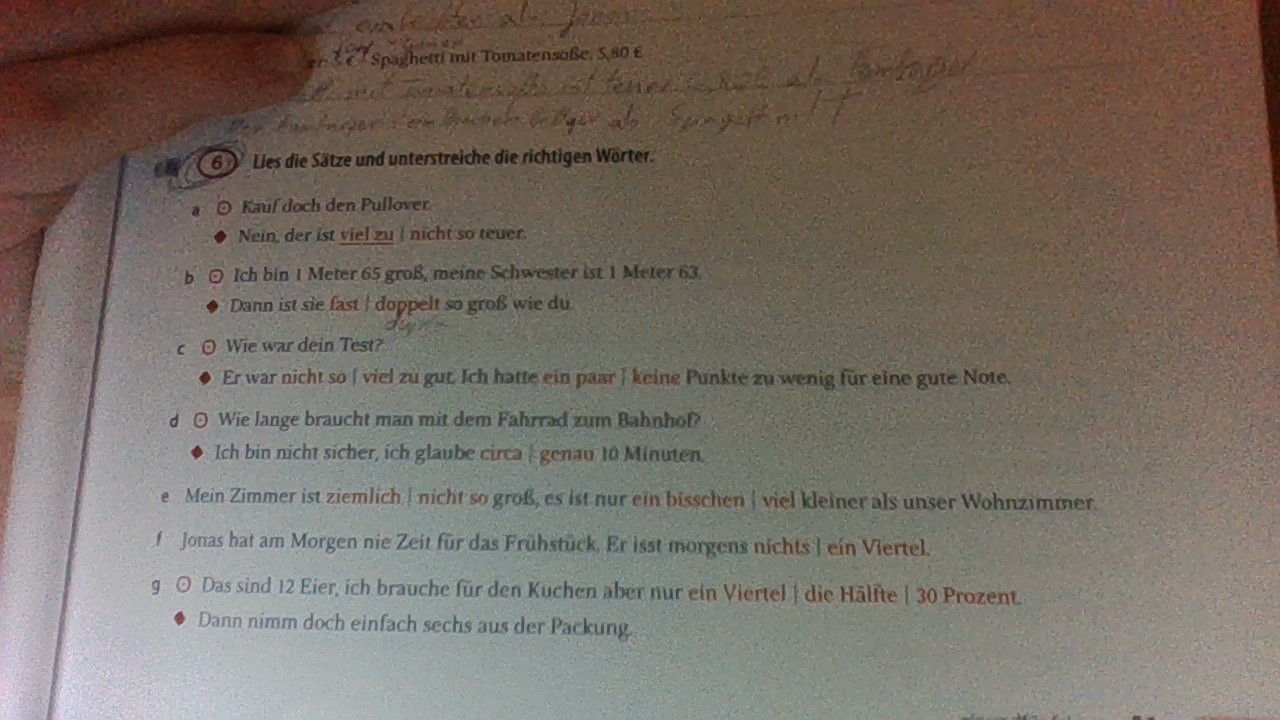 als
Spaghetti mit Tomatensoße, 5,80 €
mit ist teuer als
billiger als
6 Lies die Sätze und unterstreiche die richtigen Wörter.
a ⊙ Kauf doch den Pullover.
◆ Nein, der ist viel zu | nicht so teuer.
b ⊙ Ich bin 1 Meter 65 groß, meine Schwester ist 1 Meter 63.
◆ Dann ist sie fast | doppelt so groß wie du.
c ⊙ Wie war dein Test?
◆ Er war nicht so | viel zu gut. Ich hatte ein paar | keine Punkte zu wenig für eine gute Note.
d ⊙ Wie lange braucht man mit dem Fahrrad zum Bahnhof?
◆ Ich bin nicht sicher, ich glaube circa | genau 10 Minuten.
e Mein Zimmer ist ziemlich | nicht so groß, es ist nur ein bisschen | viel kleiner als unser Wohnzimmer.
f Jonas hat am Morgen nie Zeit für das Frühstück. Er isst morgens nichts | ein Viertel.
g ⊙ Das sind 12 Eier, ich brauche für den Kuchen aber nur ein Viertel | die Hälfte | 30 Prozent.
◆ Dann nimm doch einfach sechs aus der Packung.